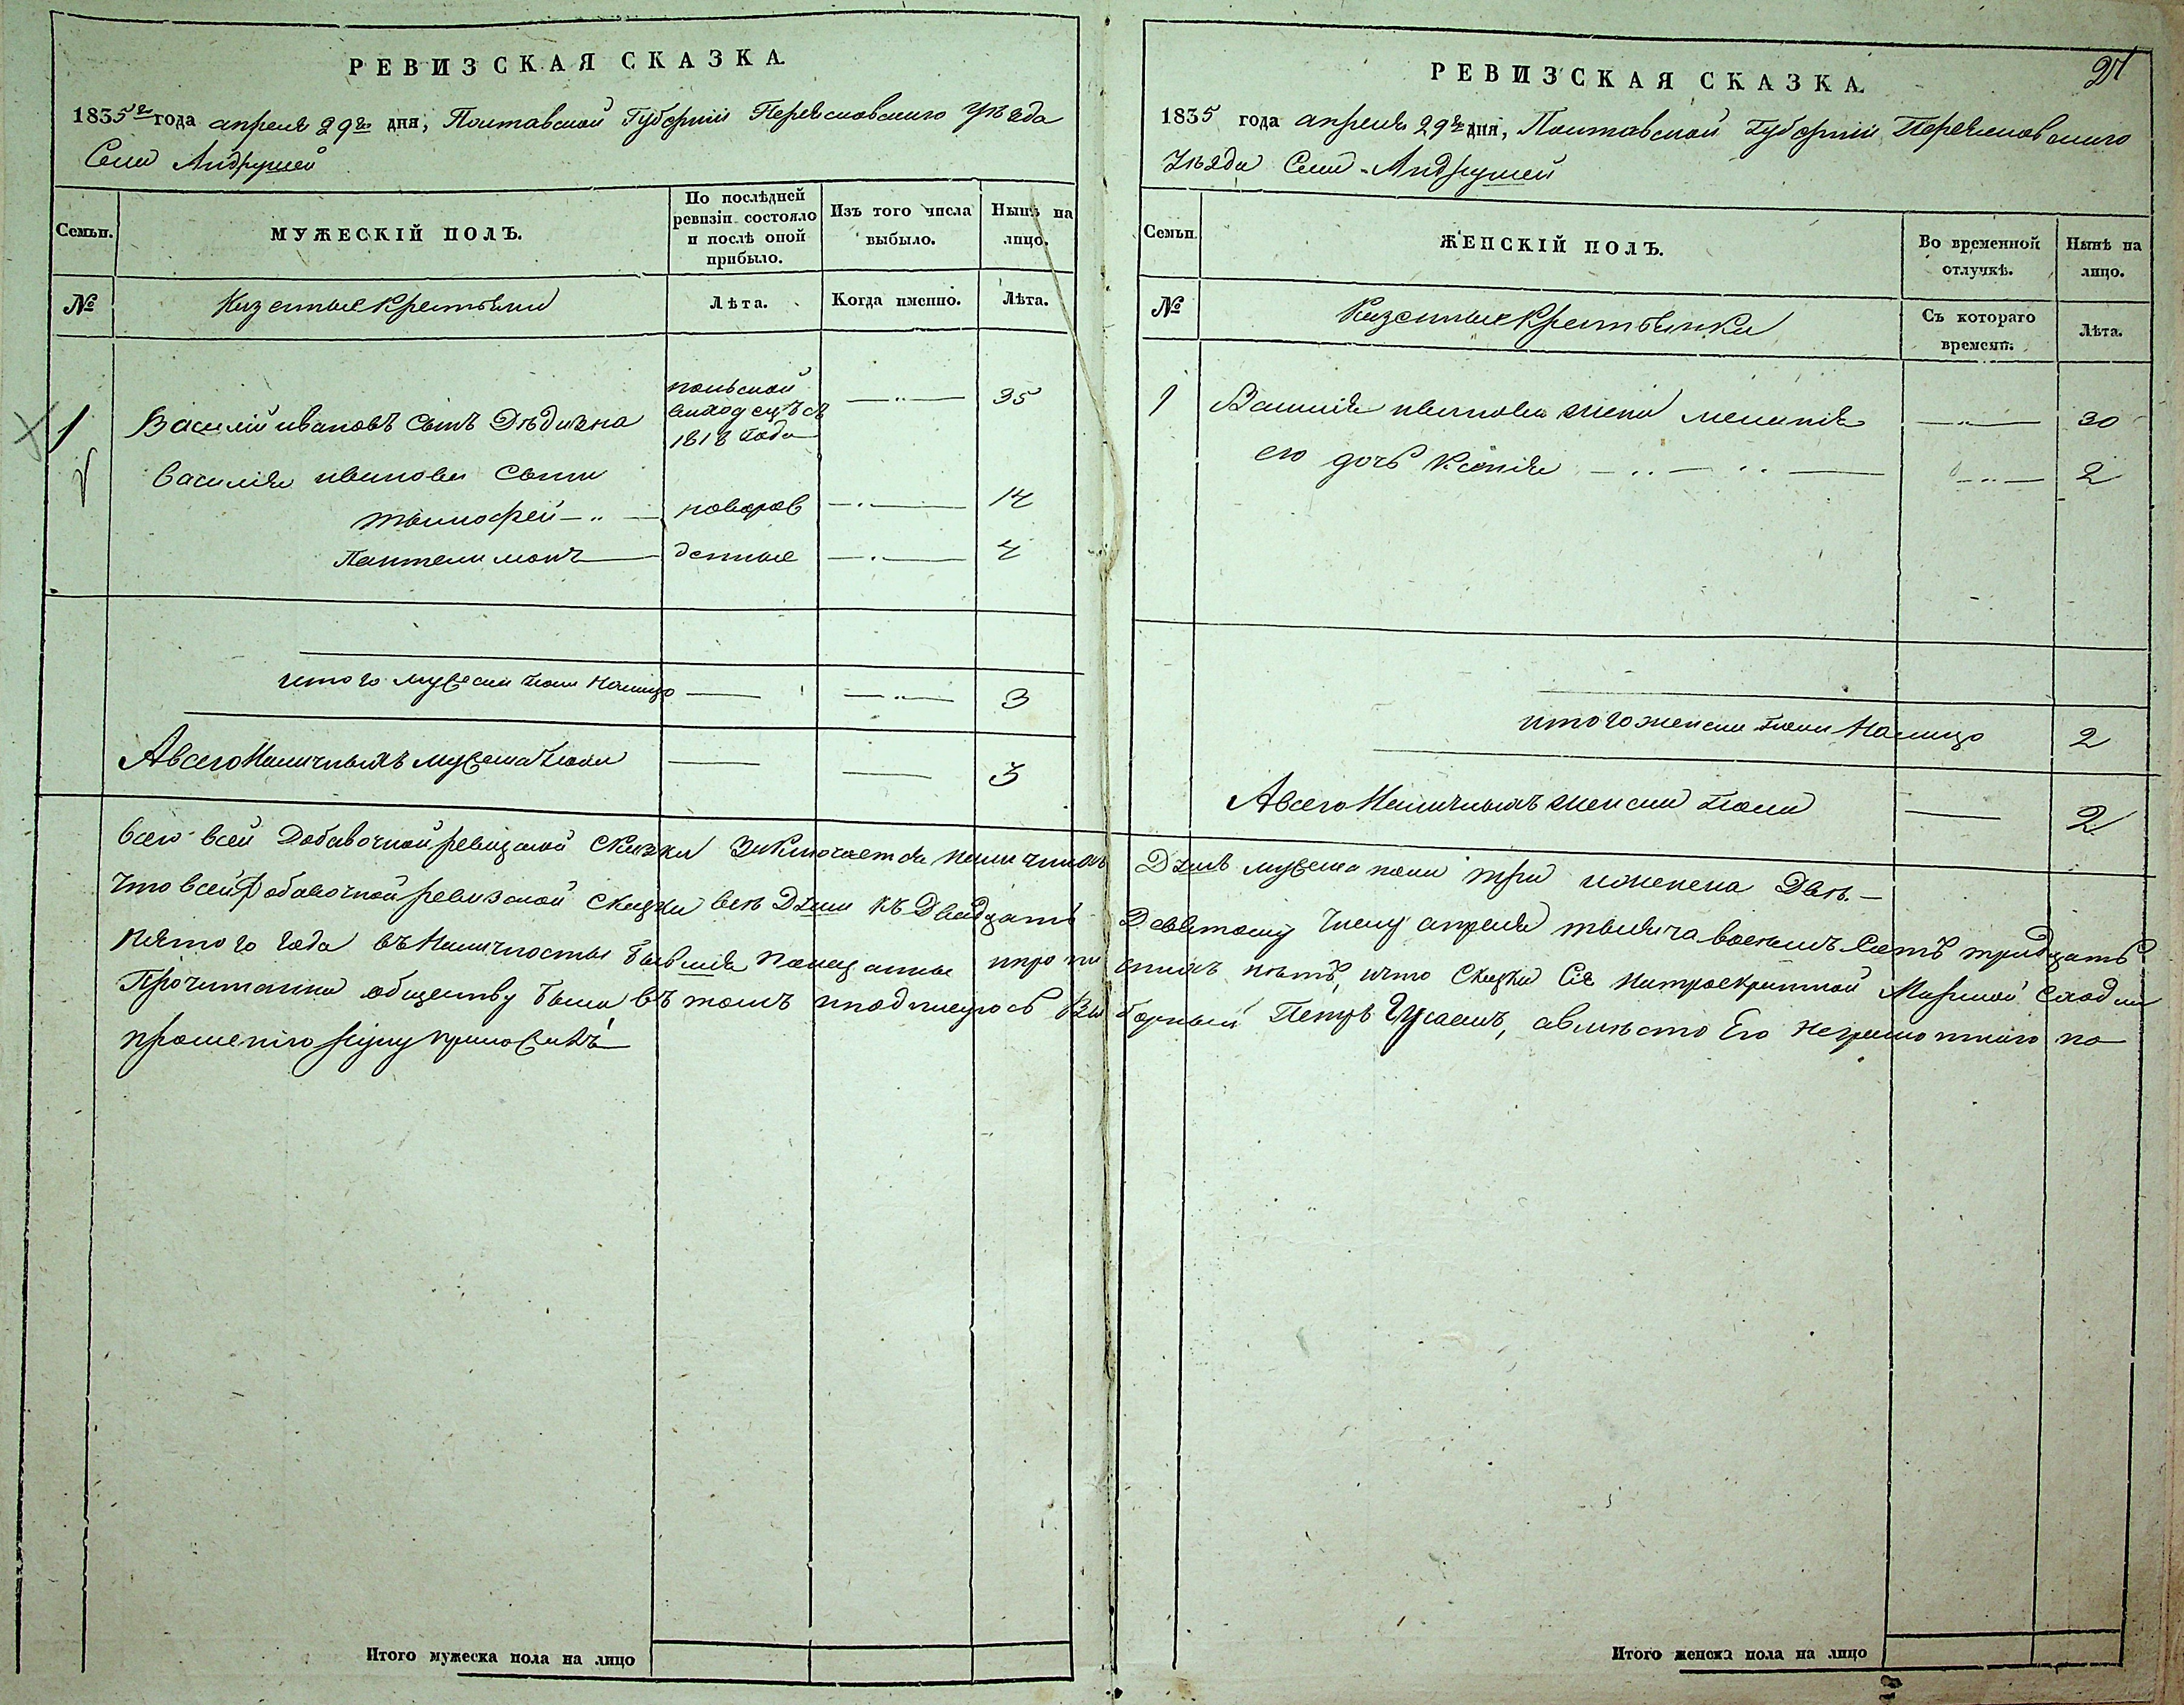 РЕВИЗСКАЯ СКАЗКА
1835го года апреля 29го дня, Полтавской Губернїи Переясловского Уѣзда
Села Андрушей
Семьи.
МУЖЕСКІЙ ПОЛЪ.
По послѣдней ревизіи состояло и послѣ оной прибыло.
Изъ того числа выбыло.
Нынѣ на лицо.
№
Казенные крестьяни
Лѣта.
Когда именно.
Лѣта.
1 Василїй ивановъ сынъ Дѣдизна польской виходецъ съ 1818 года 35
Василїя иванова сыни
тымофей новорож 14
Пантелимонъ денные 4
итого мужеска пола налицо 3
А всего Наличныхъ мужеска пола 3
РЕВИЗСКАЯ СКАЗКА
21
1835 года апреля 29го дня, Полтавской Губернїи Переясловского
Уѣзда Села Андрушей
Семьи.
ЖЕНСКІЙ ПОЛЪ.
Во временной отлучкѣ.
Нынѣ на лицо.
№
Казенные крестьянки
Съ котораго времени.
Лѣта.
1 Василїя иванова жена меланїя 30
его дочь Ксенїя 2
итого женска пола Налицо 2
А всего Наличныхъ женска пола 2
всего всей Добавочной ревизской Сказки Заключается наличныхъ Душъ мужеска пола три и женска Двѣ.
Что всей Добавочной ревизской Сказки всѣ Души къ Двадцать Девятому Числу апреля тысяча восемъ Сотъ тридцать
пятого года въ Наличносты бывшїя показанны и прописныхъ нѣтъ, и что Сказка Сїя На Мирской Сходки
Прочитанна обществу была въ томъ и подписуюсь Виборный Петръ Гусакъ, а вмѣсто Его неграмотного по
прошенїю руку приложилъ
Итого мужеска пола на лицо
Итого женска пола на лицо